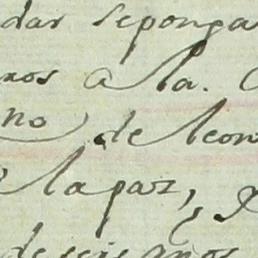 dar seponga
nos a la.
no de leon
la paz, y
de seis años